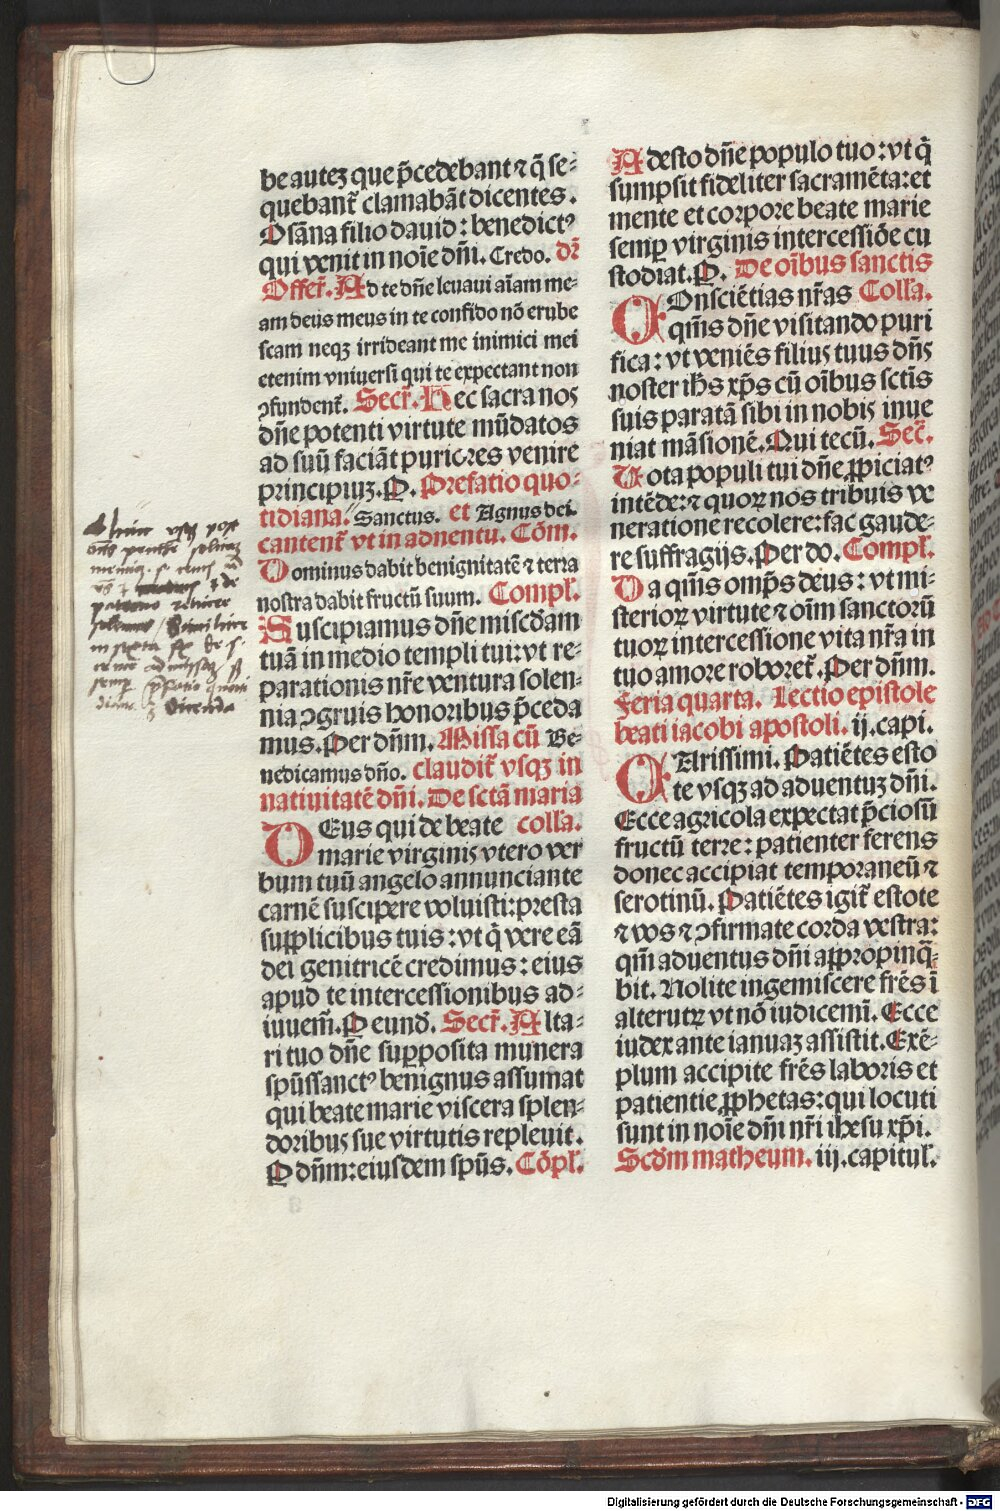 be autez que p̄cedebant ⁊ q̄ se-
quebant̄ clamabāt dicentes.
Osāna filio dauid: benedictꝰ
qui venit in noīe dn̄i. Credo. dr̄
Offer̄. Ad te dn̄e leuaui aīam me-
am deus meus in te confido nō erube
scam neqꝫ irrideant me inimici mei
etenim vniuersi qui te expectant non
ↄfundent̄. Secr̄. Hec sacra nos
dn̄e potenti virtute mūdatos
ad suū faciāt puriores venire
principiuꝫ. P. Prefatio quo-
tidiana. Sanctus. et Agnus dei.
cantent̄ vt in aduentu. Cōm.
Dominus dabit benignitatē ⁊ terra
nostra dabit fructū suum. Compl̄.
Suscipiamus dn̄e misc̄dam
tuā in medio templi tui: vt re-
parationis nr̄e ventura solen-
nia ↄgruis honoribus p̄ceda
mus. Per dn̄m. Missa cū Be-
nedicamus dn̄o. claudit̄ vsqꝫ in
natiuitatē dn̄i. De sctā maria
DEus qui de beate colla.
marie virginis vtero ver
bum tuū angelo annunciante
carnē suscipere voluisti: presta
supplicibus tuis: vt q̄ vere eā
dei genitricē credimus: eius
apud te intercessionibus ad-
iuuem̄. P eund̄. Secr̄. Alta-
ri tuo dn̄e supposita munera
spūssanctꝰ benignus assumat
qui beate marie viscera splen-
doribus sue virtutis repleuit.
P dn̄m: eiusdem spūs. Cōpl̄.
Adesto dn̄e populo tuo: vt q̄
sumpsit fideliter sacramēta: et
mente et corpore beate marie
semp̄ virginis intercessiōe cu
stodiat. P. De oībus sanctis
COnsciētias nr̄as Colla.
qm̄s dn̄e visitando puri
fica: vt veniēs filius tuus dn̄s
noster ih̄s xp̄s cū oībus sctīs
suis paratā sibi in nobis inue
niat māsionē. Qui tecū. Sec̄.
Vota populi tui dn̄e ꝓpiciatꝰ
intēde: ⁊ quoꝝ nos tribuis ve
neratione recolere: fac gaude-
re suffragijs. Per do. Compl̄.
Da qm̄s omp̄s deus: vt mi-
sterioꝝ virtute ⁊ oīm sanctorū
tuoꝝ intercessione vita nr̄a in
tuo amore roboret̄. Per dn̄m.
Feria quarta. Lectio epistole
beati iacobi apostoli. ij. capi.
CArissimi. Patiētes esto
te vsqꝫ ad aduentuꝫ dn̄i.
Ecce agricola expectat p̄ciosū
fructū terre: patienter ferens
donec accipiat temporaneū ⁊
serotinū. Patiētes igit̄ estote
⁊ vos ⁊ ↄfirmate corda vestra:
qm̄ aduentus dn̄i appropinq̄-
bit. Nolite ingemiscere frēs ī
alterutꝝ vt nō iudicemī. Ecce
iudex ante ianuaꝫ assistit. Exē-
plum accipite frēs laboris et
patientie ꝓphetas: qui locuti
sunt in noīe dn̄i nr̄i ih̄esu xp̄i.
Scd̄m matheum. iij. capitul̄.
Digitalisierung gefördert durch die Deutsche Forschungsgemeinschaft - DFG